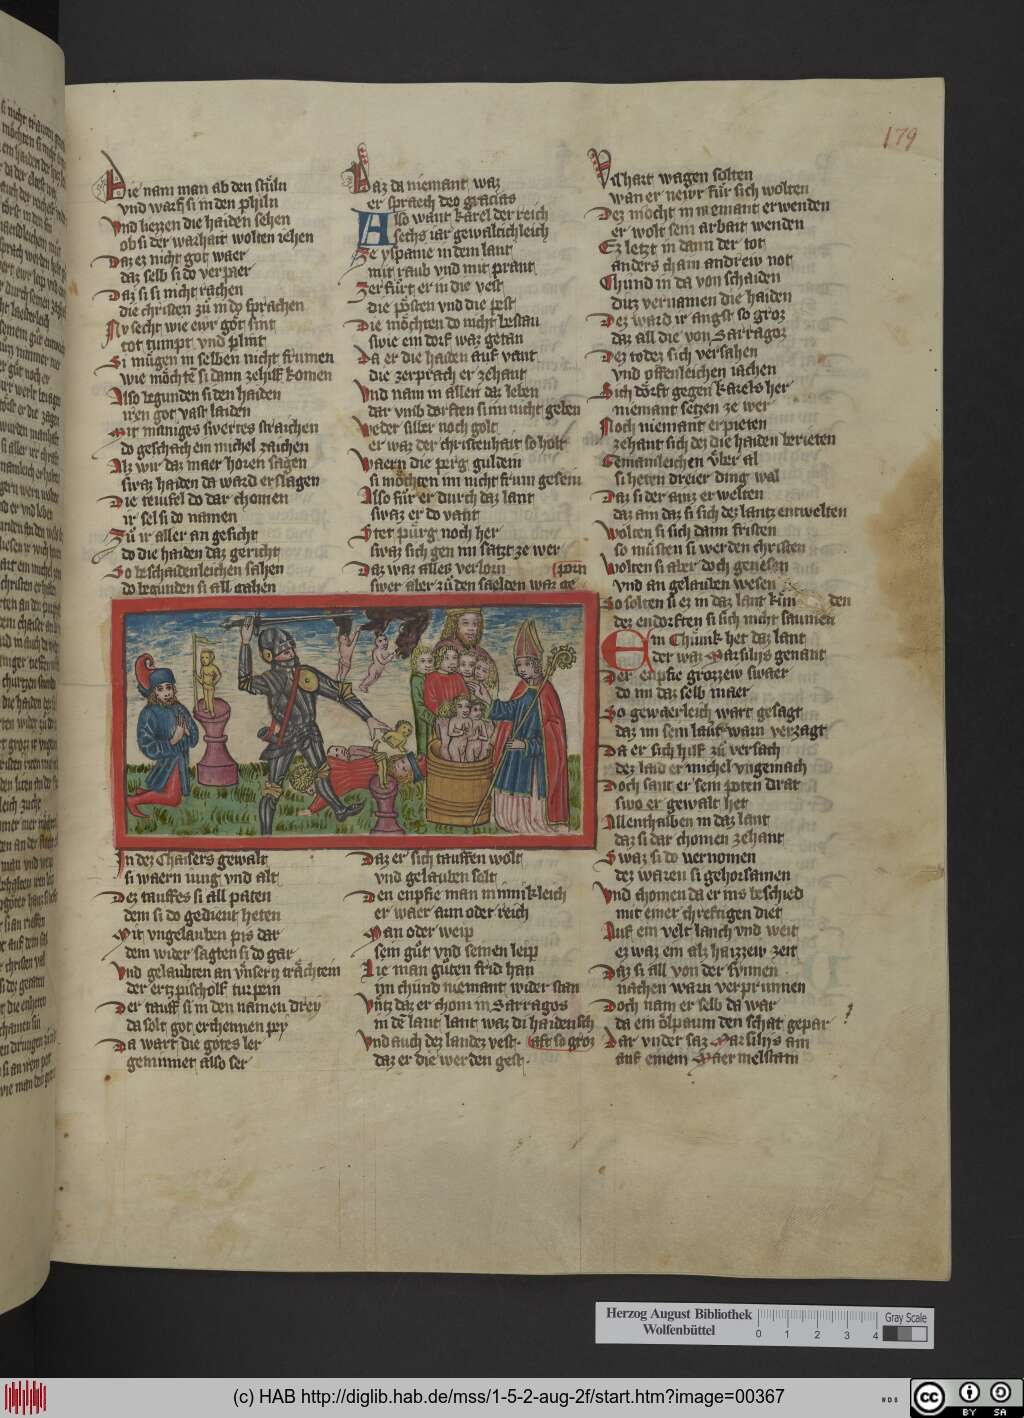 179
Die nam man ab den stůln
vnd warf si in den philn
Vnd hiezzen die haiden sehen
ob si der warhait wolten iehen
Daz ez nicht got waer
daz selb si do verpaer
Daz si si nicht rachen
die christen zů in do sprachen
Nv secht wie ewr gǒt sint
tot tumpt vnd plint
Si mügen in selben nicht frumen
wie möchtē si dann ze hilf komen
Also begunden si den haiden
iren got vast laiden
Mit maniges swertes straichen
do geschach ein michel zaichen
Alz wir daz maer horen sagen
swaz haiden da ward erslagen
Die teuifel do dar chomen
ir sel si do namen
Zů ir aller an gesicht
do die haiden daz gericht
So beschaidenleichen sahen
do begunden si all gahen
In dez Chaisers gewalt
si waern iung vnd alt
Dez tauffes si all paten
dem si do gedient heten
Mit vngelauben pis dar
dem wider sagten si do gar
Vnd gelaubten an vnsern trächtein
der ertzpischolf turpein
Der tauff si in den namen drey
da solt got erchennen pey
Da wart die gotes ler
gemimet also ser
Daz da niemant waz
er spraech deo gracias
Also want Karel der reich
sechs iar gewaltichleich
Ze yspanie in dem lant
mit raub vnd mit prant
Zerfürt er in die vest
die pösten vnd die pest
Die möchten do nicht bestan
swie ein dorf waz getan
Da er die haiden auf vant
die zerprach er zehant
Vnd nam in allen daz leben
dar vmb dorften si im nicht geben
Weder silber noch golt
er waz der christenhait so holt
Waern die perg guldein
si möchten im nicht frum gesein
Also für er durch daz lant
swaz er do vant
Stet pürg noch her
swaz sich gen im satzt ze wer
Daz waz alles verlorn
zorn
swer aber zů den saelden waz ge
Daz er sich tauffen wolt
vnd gelauben solt
Den enpfie man minnikleich
er waer arm oder reich
Man oder weip
sein gůt vnd seinen leip
Lie man gůten frid han
im chund niemant wider stan
Vntz daz er chom in Sarragos
in dē lant lant waz di haidensch
Vnd auch dez landez vest
aft so groz
daz er die werden gest
Vilhart wagen solten
wan er newr für sich wolten
Dez mocht in niemant erwenden
er wolt sein arbait wenden
Ez letzt in dann der tot
anders cham andrew not
Chund in da von schaiden
ditz vernamen die haiden
Dez ward ir angst so groz
daz all die von Sarragoz
Dez todez sich versahen
vnd offenleichen iachen
Sich dörft gegen Karels her
niemant setzen ze wer
Noch niemant erpieten
zehant sich dez die haiden berieten
Gemainleichen vber al
si heten dreier ding wal
Daz si der ainz erwelten
daz ain daz si sich dez lantz entwelten
Wolten si sich dann fristen
so můsten si werden christen
Wolten si aber doch genesen
vnd an gelauben wesen
So solten si ez in daz lant kün den
dez endorften si sich nicht saumen
Ein Chünik het daz lant
der waz Marsilijs genant
Der enpfie grozzew swaer
do im daz selb maer
So gewaerleich wart gesagt
daz im sein laut warn verzagt
Da er sich hilf zů versach
dez laid er michel vngemach
Doch sant er sein poten drat
swo er gewalt het
Allenthalben in daz lant
daz si dar chomen zehant
Swaz si do vernomen
dez waren si gehorsamen
Vnd chomen da er ins beschied
mit einer chreftigen diet
Auf ein velt lanch vnd weit
ez waz ein alz haizzew zeit
Daz si all von der synnen
nachen warn verprunnen
Doch nam er selb da war
da ein ölpaum den schat gepar
Dar vnder saz Marsilijs ain
auf einem Maermelstain
Herzog August Bibliothek
Wolfenbüttel
0 1 2 3 4
Gray Scale
(c) HAB http://diglib.hab.de/mss/1-5-2-aug-2f/start.htm?image=00367
WDB
cc
BY SA